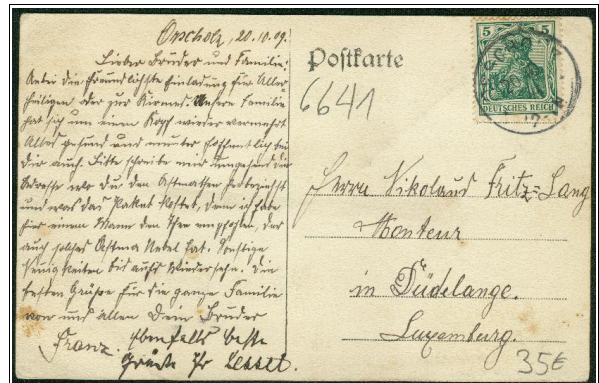 Orscholz, 20.10.09.
Lieber Bruder und Familie!
Anbei die freundlichste Einladung für Aller-
heiligen oder zur Kirmes. Unsere Familie
hat sich um einen Kopf wieder vermehrt
Alles gesund und munter hoffentlich bei
Dir auch. Bitte schreibe mir umgehend die
Adresse wo du den Astmathee her beziehst
und was das Paket kostet, denn ich habe
hier einem Mann den Thee empfohlen, der
auch solches Astma Uebel hat. Sonstige
Neuigkeiten bis aufs Wiedersehn. Die
besten Grüße für die ganze Familie
von uns allen Dein Bruder
Franz. Ebenfalls beste
Grüße
Postkarte
6641
5 5
DEUTSCHES REICH
Herrn Nikolaus Fritz-Lang
Monteur
in Düdelange.
Luxemburg.
35€